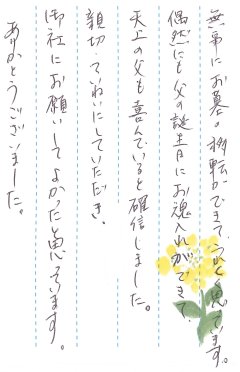 無事にお墓の移転ができて、うれしく思います。
偶然にも父の誕生月にお魂入れができて、
天上の父も喜んでいると確信しました。
親切、ていねいにしていただき、
御社にお願いしてよかったと思ってます。
ありがとうございました。